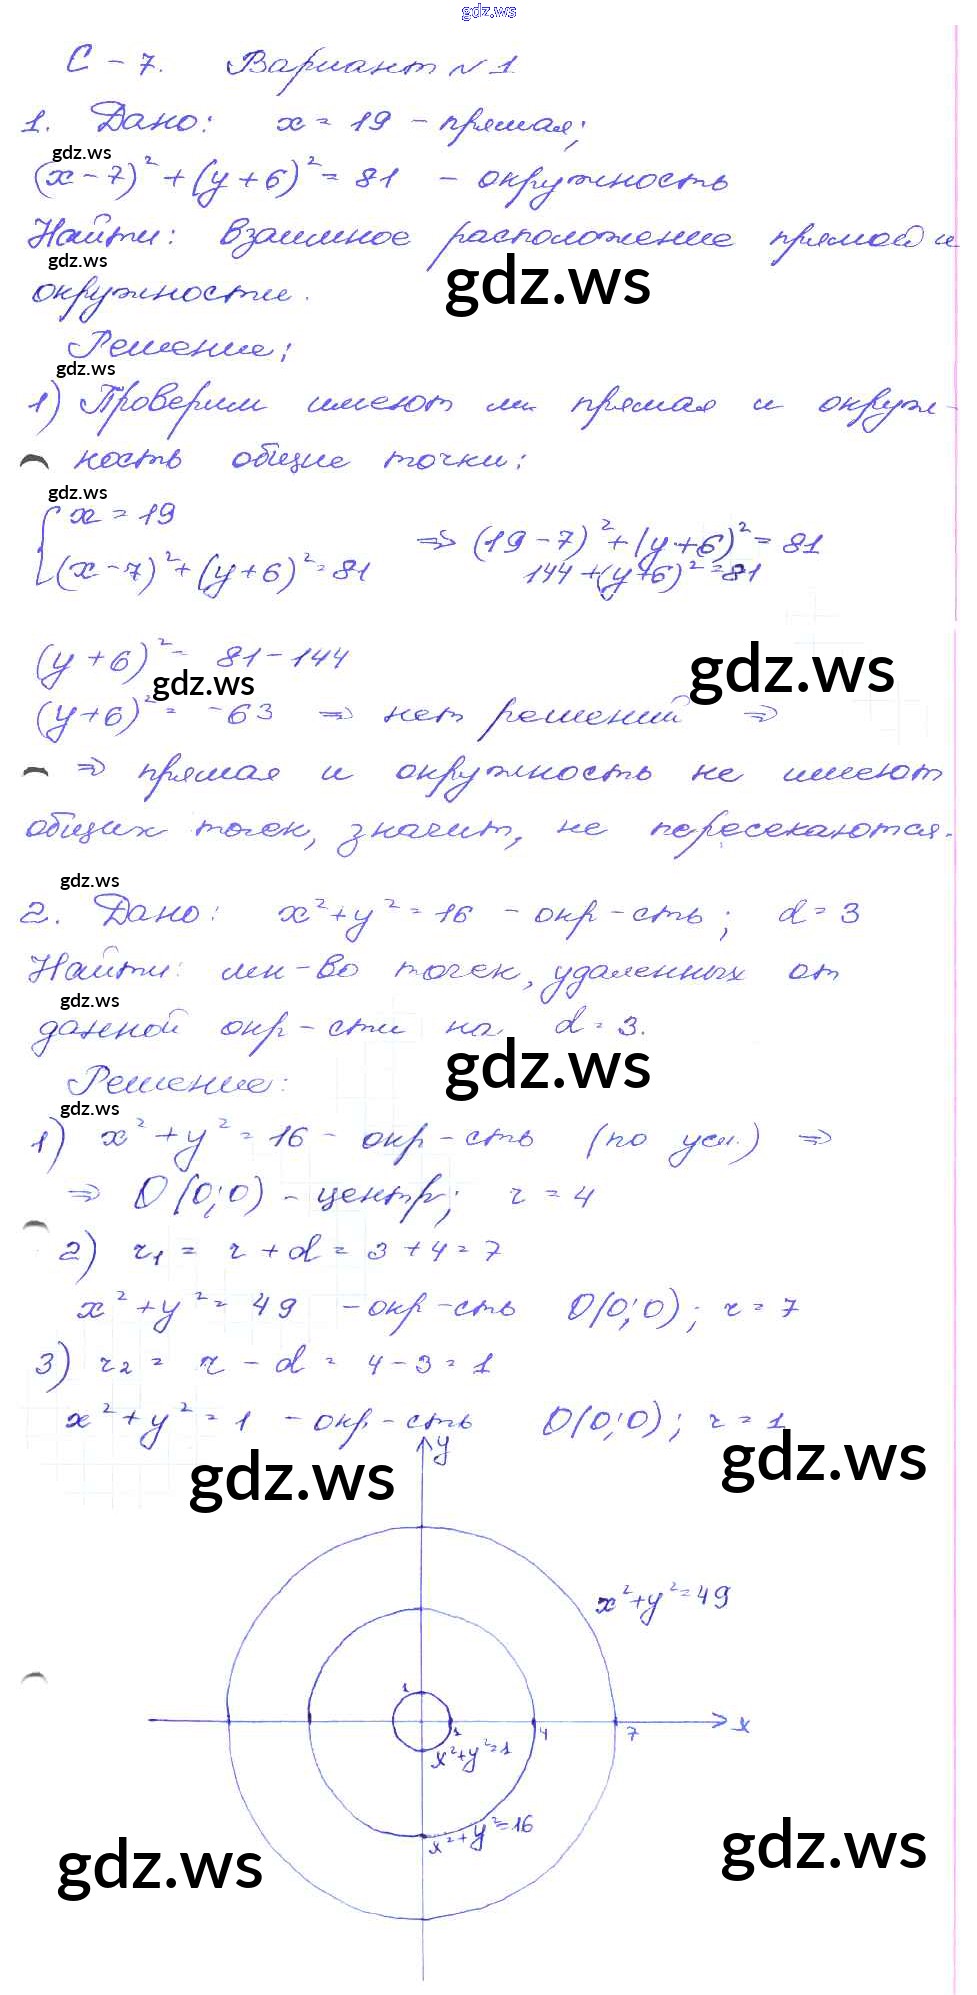 gdz.ws
С – 7. Вариант № 1
1. Дано: x = 19 – прямая;
gdz.ws
(x – 7)² + (y + 6)² = 81 – окружность
Найти: взаимное расположение прямой и
gdz.ws
gdz.ws
окружности.
Решение:
gdz.ws
1) Проверим имеют ли прямая и окруж-
ность общие точки:
gdz.ws
{ x = 19
(x – 7)² + (y + 6)² = 81
⇒ (19 – 7)² + (y + 6)² = 81
144 + (y + 6)² = 81
(y + 6)² = 81 – 144
gdz.ws
gdz.ws
(y + 6)² = –63 ⇒ нет решений ⇒
⇒ прямая и окружность не имеют
общих точек, значит, не пересекаются.
gdz.ws
2. Дано: x² + y² = 16 – окр-сть; d = 3
Найти: мн-во точек, удаленных от
gdz.ws
данной окр-сти на d = 3.
gdz.ws
Решение:
gdz.ws
1) x² + y² = 16 – окр-сть (по усл.) ⇒
⇒ O(0;0) – центр; r = 4
2) r₁ = r + d = 3 + 4 = 7
x² + y² = 49 – окр-сть O(0;0); r = 7
3) r₂ = r – d = 4 – 3 = 1
x² + y² = 1 – окр-сть O(0;0); r = 1
y
gdz.ws
gdz.ws
x² + y² = 49
1
1 4 7 x
x² + y² = 1
x² + y² = 16
gdz.ws
gdz.ws